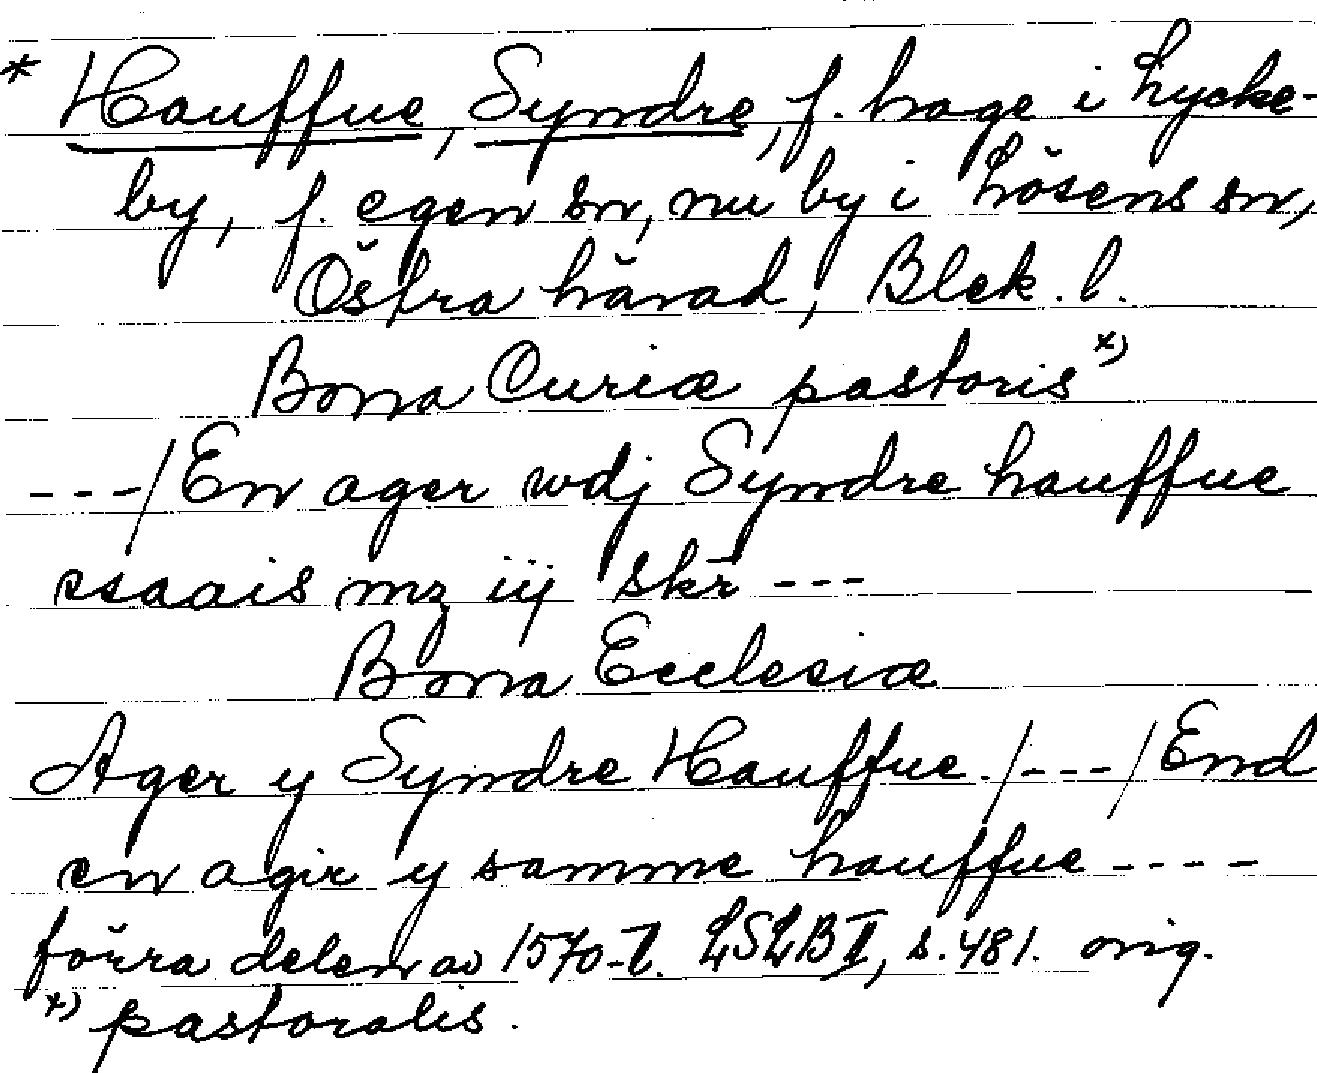 * Hauffue, Syndre, f. hage i Lycke-
by, f. egen sn, nu by i Lösens sn,
Östra härad, Blek. l.
Bona Curiæ pastoris x)
---/En ager wdj Syndre hauffue
ssaais mz iij skr ---
Bona Ecclesiæ
Ager y Syndre Hauffue./---/End
en agir y samme hauffue ----
förra delen av 1570-t. LSLB II, s. 481. orig.
x) pastoralis.